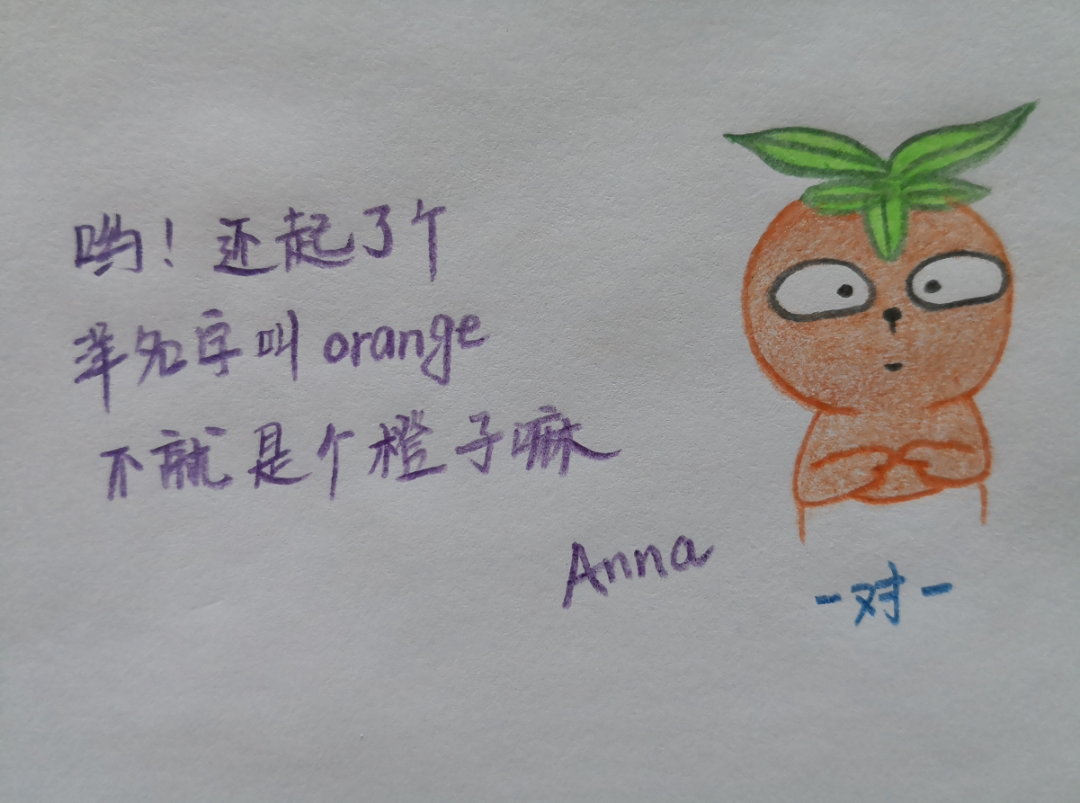 哟！还起了个
洋名字叫orange
不就是个橙子嘛
Anna
-对-